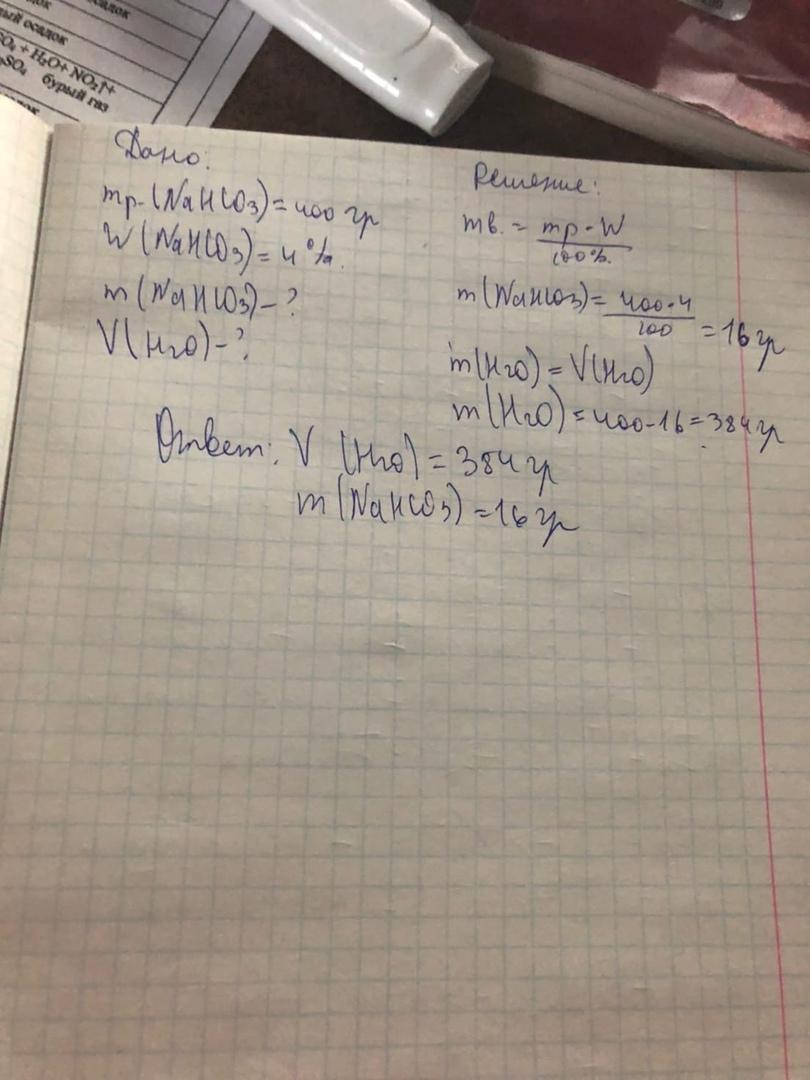 осадок
осадок
O₄ + H₂O + NO₂↑+
SO₄ бурый газ
Дано:
mр-(NaHCO3)=400 гр
W(NaHCO3)=4%.
m(NaHCO3)-?
V(H2O)-?
Решение:
mв. = mр·W
100%.
m(NaHCO3)= 400·4
100 =16 гр
m(H2O)=V(H2O)
m(H2O)=400-16=384 гр
Ответ: V (H2O)=384 гр
m(NaHCO3)=16 гр